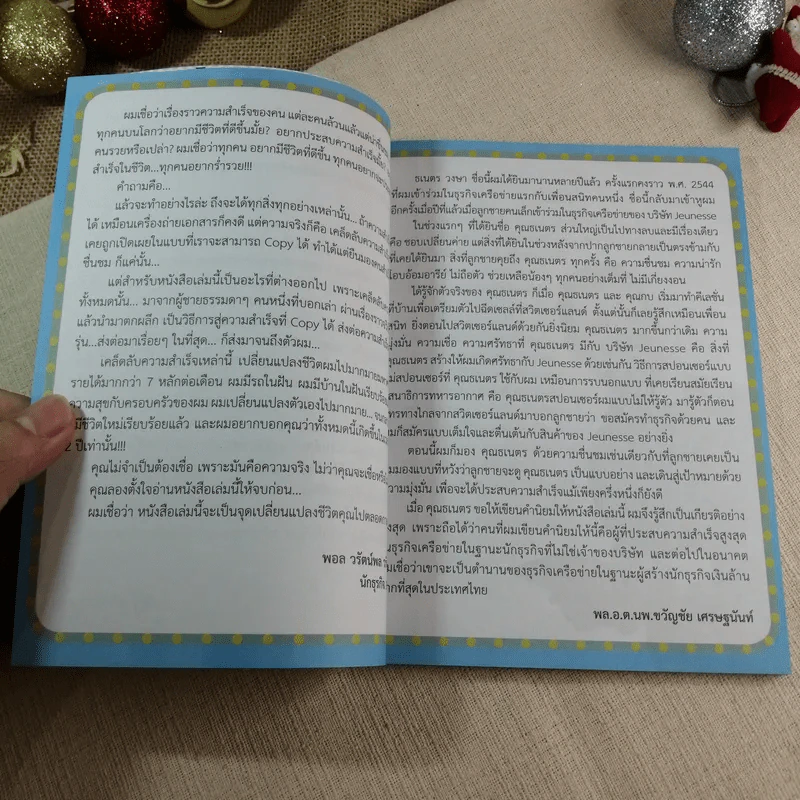 ผมเชื่อว่าเรื่องราวความสำเร็จของคน แต่ละคนล้วนแล้วแต่น่า
ทุกคนบนโลกว่าอยากมีชีวิตที่ดีขึ้นมั้ย? อยากประสบความสำเร็จมั้ย?
คนรวยหรือเปล่า? ผมเชื่อว่าทุกคน อยากมีชีวิตที่ดีขึ้น ทุกคนอยาก
สำเร็จในชีวิต...ทุกคนอยากร่ำรวย!!!
คำถามคือ...
แล้วจะทำอย่างไรล่ะ ถึงจะได้ทุกสิ่งทุกอย่างเหล่านั้น... ถ้าความ
ได้ เหมือนเครื่องถ่ายเอกสารก็คงดี แต่ความจริงก็คือ เคล็ดลับความ
เคยถูกเปิดเผยในแบบที่เราจะสามารถ Copy ได้ ทำได้แต่ยืนมองคน
ชื่นชม ก็แค่นั้น...
แต่สำหรับหนังสือเล่มนี้เป็นอะไรที่ต่างออกไป เพราะเคล็ดลับ
ทั้งหมดนั้น... มาจากผู้ชายธรรมดาๆ คนหนึ่งที่บอกเล่า ผ่านเรื่องราว
แล้วนำมาตกผลึก เป็นวิธีการสู่ความสำเร็จที่ Copy ได้ ส่งต่อความ
รุ่น...ส่งต่อมาเรื่อยๆ ในที่สุด... ก็ส่งมาจนถึงตัวผม...
เคล็ดลับความสำเร็จเหล่านี้ เปลี่ยนแปลงชีวิตผมไปมากมาย
รายได้มากกว่า 7 หลักต่อเดือน ผมมีรถในฝัน ผมมีบ้านในฝันเรียบร้อย
ความสุขกับครอบครัวของผม ผมเปลี่ยนแปลงตัวเองไปมากมาย...
มีชีวิตใหม่เรียบร้อยแล้ว และผมอยากบอกคุณว่าทั้งหมดนี้เกิดขึ้น
2 ปีเท่านั้น!!!
คุณไม่จำเป็นต้องเชื่อ เพราะมันคือความจริง ไม่ว่าคุณจะเชื่อหรือ
คุณลองตั้งใจอ่านหนังสือเล่มนี้ให้จบก่อน...
ผมเชื่อว่า หนังสือเล่มนี้จะเป็นจุดเปลี่ยนแปลงชีวิตคุณไปตลอด
พอล วรัตน์พล
นักธุรกิจ
ธเนตร วงษา ชื่อนี้ผมได้ยินมานานหลายปีแล้ว ครั้งแรกคงราว พ.ศ. 2544
ที่ผมเข้าร่วมในธุรกิจเครือข่ายแรกกับเพื่อนสนิทคนหนึ่ง ชื่อนี้กลับมาเข้าหูผม
อีกครั้งเมื่อปีที่แล้วเมื่อลูกชายคนเล็กเข้าร่วมในธุรกิจเครือข่ายของ บริษัท Jeunesse
ในช่วงแรกๆ ที่ได้ยินชื่อ คุณธเนตร ส่วนใหญ่เป็นไปทางลบและมีเรื่องเดียว
คือ ชอบเปลี่ยนค่าย แต่สิ่งที่ได้ยินในช่วงหลังจากปากลูกชายกลายเป็นตรงข้ามกับ
ที่เคยได้ยินมา สิ่งที่ลูกชายคุยถึง คุณธเนตร ทุกครั้ง คือ ความชื่นชม ความน่ารัก
โอบอ้อมอารีย์ ไม่ถือตัว ช่วยเหลือน้องๆ ทุกคนอย่างเต็มที่ ไม่มีเกี่ยงงอน
ได้รู้จักตัวจริงของ คุณธเนตร ก็เมื่อ คุณธเนตร และ คุณกบ เริ่มมาทำคีเลชั่น
ที่บ้านเพื่อเตรียมตัวไปฉีดเซลล์ที่สวิตเซอร์แลนด์ ตั้งแต่นั้นก็เลยรู้สึกเหมือนเพื่อน
สนิท ยิ่งตอนไปสวิตเซอร์แลนด์ด้วยกันยิ่งนิยม คุณธเนตร มากขึ้นกว่าเดิม ความ
มุ่งมั่น ความเชื่อ ความศรัทธาที่ คุณธเนตร มีกับ บริษัท Jeunesse คือ สิ่งที่
คุณธเนตร สร้างให้ผมเกิดศรัทธากับ Jeunesse ด้วยเช่นกัน วิธีการสปอนเซอร์แบบ
ไม่สปอนเซอร์ที่ คุณธเนตร ใช้กับผม เหมือนการรบนอกแบบ ที่เคยเรียนสมัยเรียน
เสนาธิการทหารอากาศ คือ คุณธเนตรสปอนเซอร์ผมแบบไม่ให้รู้ตัว มารู้ตัวก็ตอน
โทรทางไกลจากสวิตเซอร์แลนด์มาบอกลูกชายว่า ขอสมัครทำธุรกิจด้วยคน และ
ผมก็สมัครแบบเต็มใจและตื่นเต้นกับสินค้าของ Jeunesse อย่างยิ่ง
ตอนนี้ผมก็มอง คุณธเนตร ด้วยความชื่นชมเช่นเดียวกับที่ลูกชายเคยเป็น
ผมมองแบบที่หวังว่าลูกชายจะดู คุณธเนตร เป็นแบบอย่าง และเดินสู่เป้าหมายด้วย
ความมุ่งมั่น เพื่อจะได้ประสบความสำเร็จแม้เพียงครึ่งหนึ่งก็ยังดี
เมื่อ คุณธเนตร ขอให้เขียนคำนิยมให้หนังสือเล่มนี้ ผมจึงรู้สึกเป็นเกียรติอย่าง
สูงสุด เพราะถือได้ว่าคนที่ผมเขียนคำนิยมให้นี้คือผู้ที่ประสบความสำเร็จสูงสุด
ในธุรกิจเครือข่ายในฐานะนักธุรกิจที่ไม่ใช่เจ้าของบริษัท และต่อไปในอนาคต
ผมเชื่อว่าเขาจะเป็นตำนานของธุรกิจเครือข่ายในฐานะผู้สร้างนักธุรกิจเงินล้าน
มากที่สุดในประเทศไทย
พล.อ.ต.นพ.ขวัญชัย เศรษฐนันท์